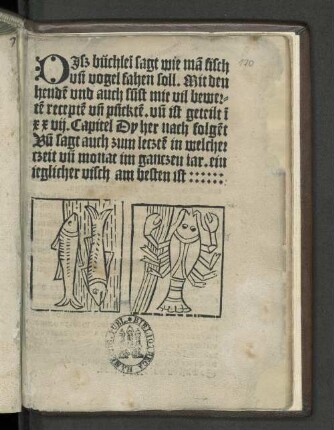 Disz büchlei sagt wie mā fisch
vñ vogel fahen soll. Mit den
hendē vnd auch süst mie vil bewer-
tē receptē vñ pücktē. vñ ist geteilt ī
xx vij. Capitel Dy her nach folgēt
Vñ sagt auch zum letztē in welcher
tzeit vñ monat im gantzen iar. ein
ieglicher visch am besten ist ::::::
120